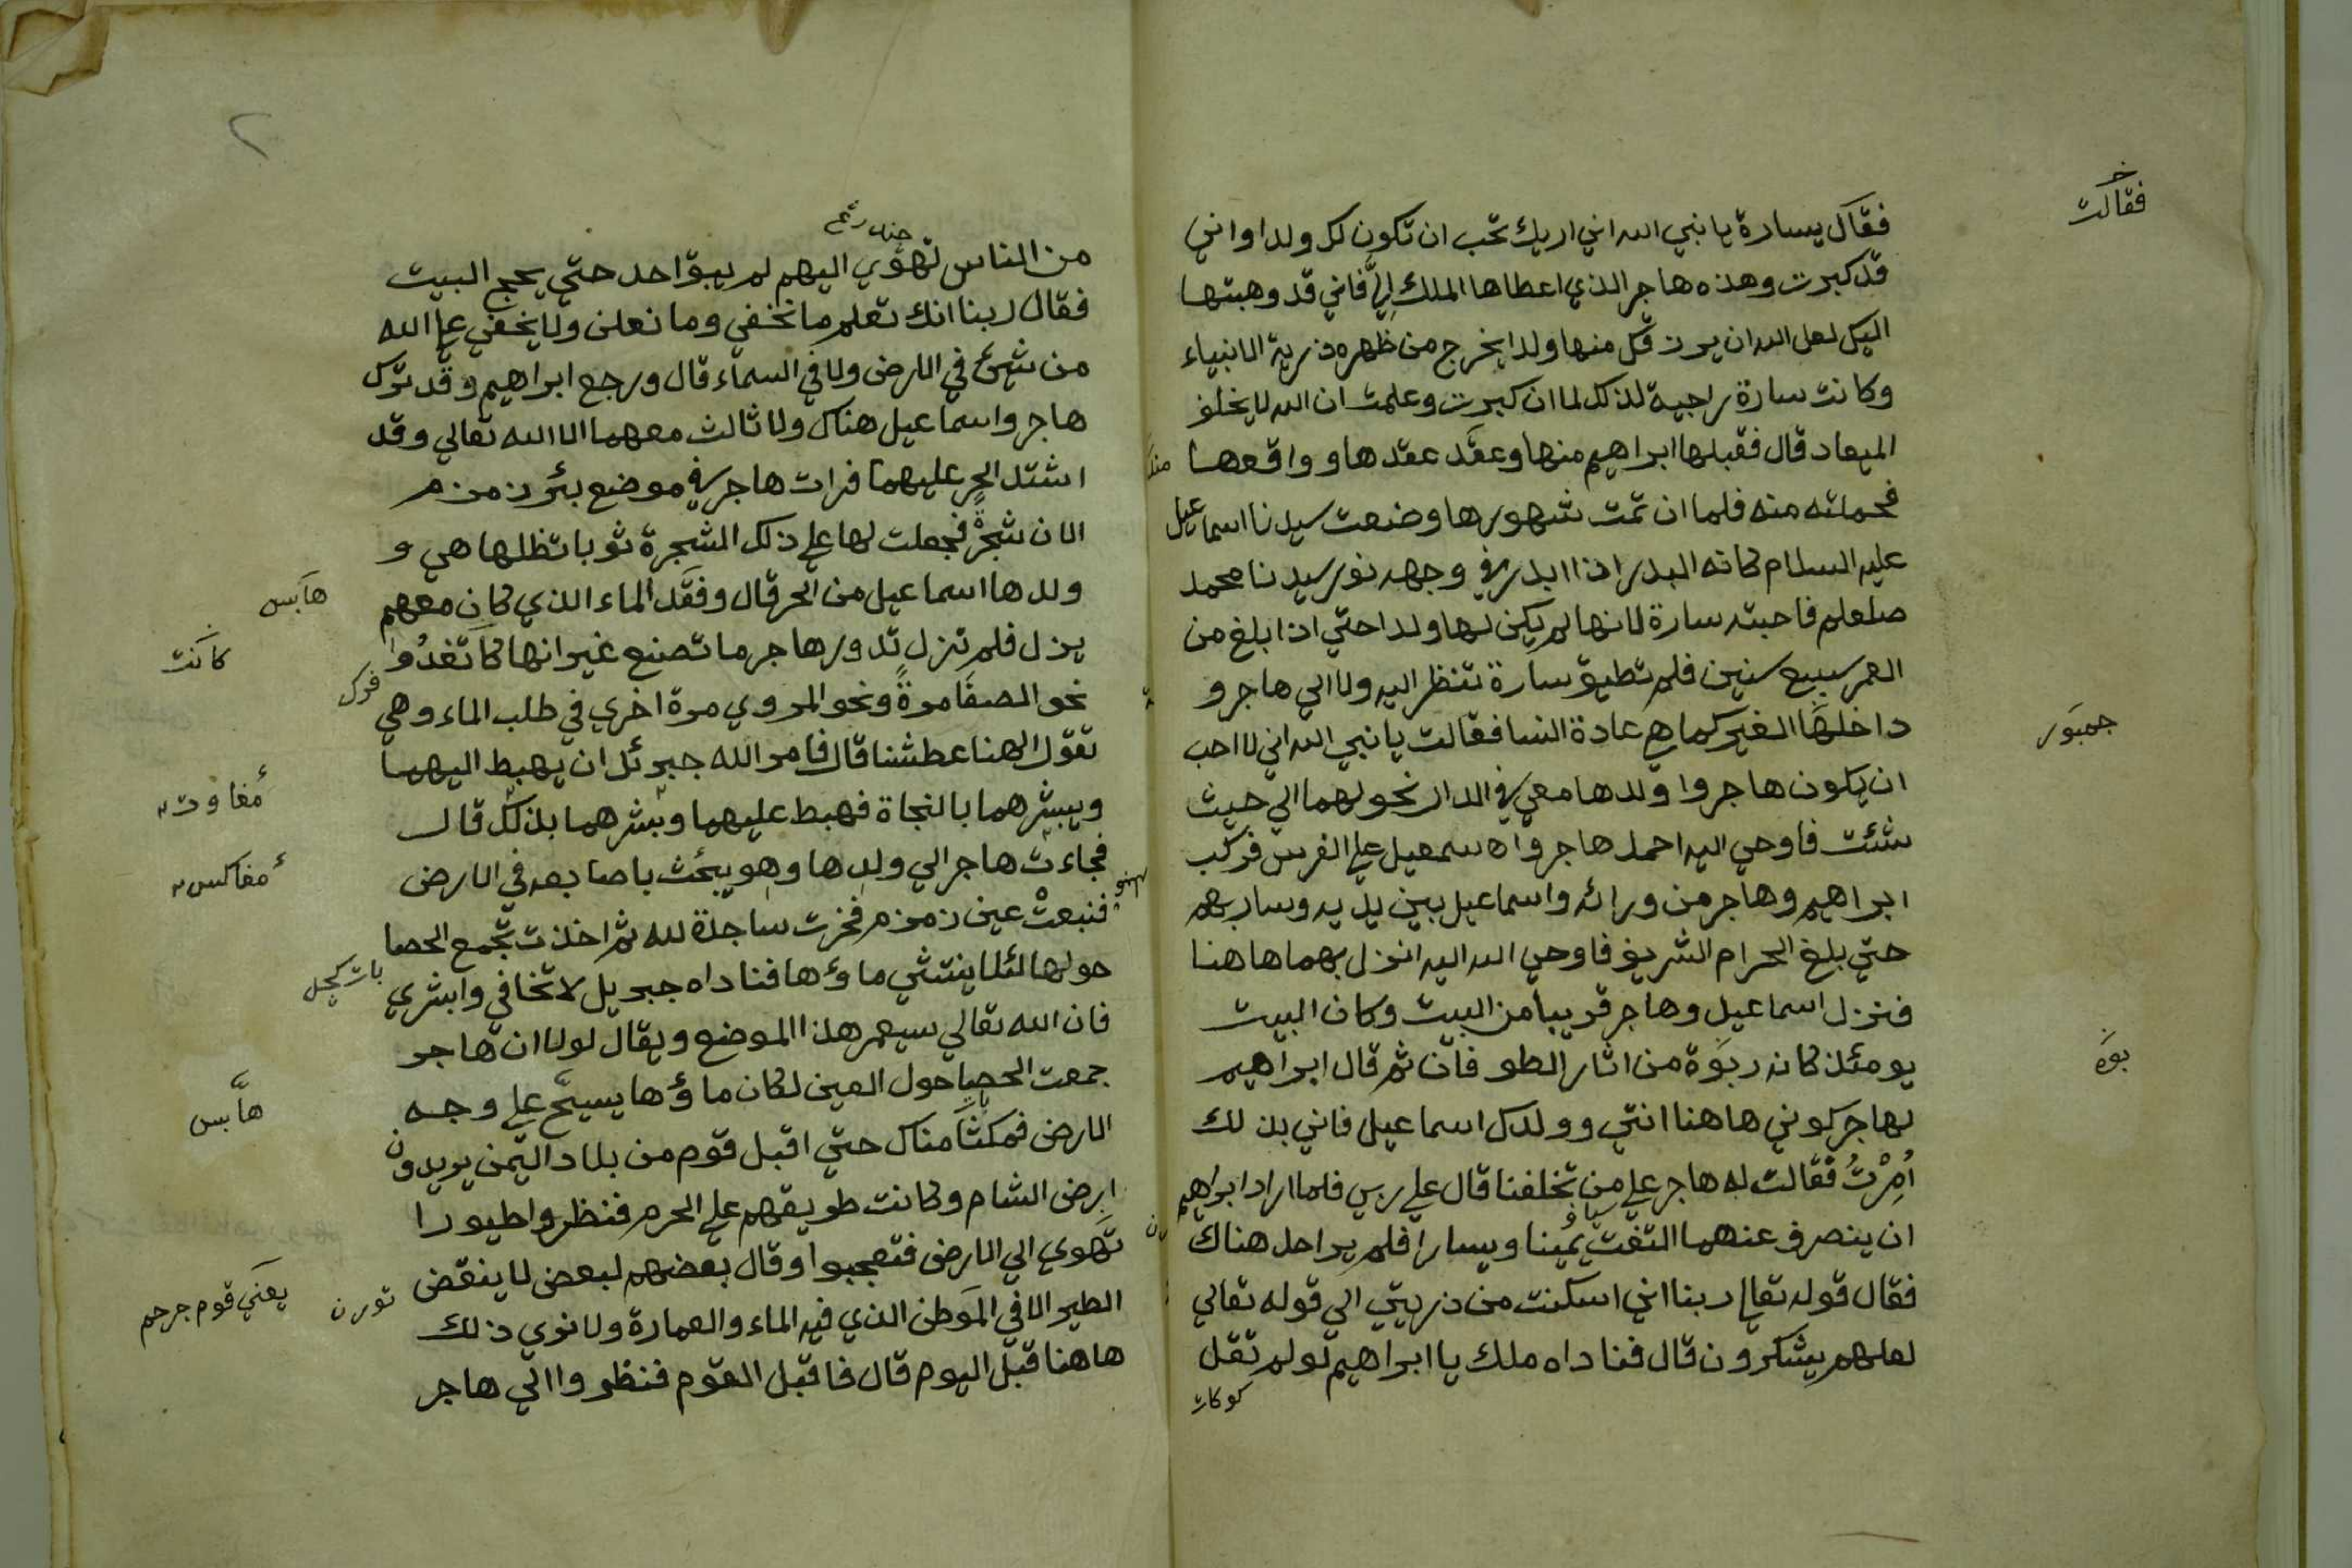 فقالت
فقال يسارة يا نبي الله اني اريك تحب ان تكون لك ولدا واني
قد كبرت وهذه هاجر الذي اعطاها الملك اليَّ فاني قد وهبتها
اليك لعل الله ان يرزقك منها ولدا يخرج من ظهره ذرية الانبياء
وكانت سارة راجية لذلك لما ان كبرت وعلمت ان الله لا يخلف
الميعاد قال فقبلها ابراهيم منها وعقد عقدها وواقعها
فحملته منه فلما ان تمت شهورها وضعت سيدنا اسماعيل
عليه السلام كانه البدر اذا ابدر في وجهه نور سيدنا محمد
صلعلم فاحبته سارة لانها لم يكن لها ولدا حتي اذا بلغ من
العمر سبيع سنين فلم تطيق سارة تنظر اليه ولا الي هاجر و
داخلها الغير كما هي عادة النسا فقالت يا نبي الله اني لا احب
جمبور
ان يكون هاجر وا ولدها معي في الدار نحولهما الي حيث
شئت فاوحي اليه احمل هاجر واه سمعيل علي الفرس فركب
ابراهيم وهاجر من ورائه واسماعيل بين يديه وسار بهم
حتي بلغ الحرام الشريف فاوحي الله اليه انزل بهما هاهنا
فنزل اسماعيل وهاجر قريبا من البيت وكان البيت
يومئذ كانه ربوة من اثار الطوفان ثم قال ابراهيم
بوة
لهاجر كوني هاهنا انتي وولدك اسماعيل فاني بذلك
اُمِرْتُ فقالت له هاجر علي من تخلفنا قال علي ربي فلما اراد ابراهيم
ان ينصرف عنهما التفت يمينا ويسارا فلم ير احد هناك
فقال قوله تعالي ربنا اني اسكنت من ذريتي الي قوله تعالي
لعلهم يشكرون قال فناداه ملك يا ابراهيم لو لم تقل
كوكات
٢
من الناس تهوي اليهم لم يبق احد حتي يحج البيت
فقال ربنا انك تعلم ما نخفي وما نعلن ولا يخفي علي الله
من شيئ في الارض ولا في السماء قال ورجع ابراهيم وقد ترك
هاجر واسماعيل هناك ولا ثالث معهما الا الله تعالي وقد
اشتد الحر عليهما فرات هاجر في موضع بئر زمزم
الان شجرة فجعلت لها علي ذلك الشجرة ثوبا تظلها هي و
ولدها اسماعيل من الحر قال وفقد الماء الذي كان معهم
هابس
يزل فلم تزل تدور هاجر ما تصنع غير انها كا تغدوا
كانت
نحو الصفا مرةً ونحو المروي مرة اخري في طلب الماء وهي
تقول الهنا عطشنا قال فامر الله جبرئل ان يهبط اليهما
ويبشرهما بالنجاة فهبط عليهما وبشرهما بذلك قال
فجاءت هاجر الي ولدها وهو يبحث باصابعه في الارض
فنبعتْ عين زمزم فخرت ساجدة لله ثم اخذت تجمع الحصا
حولها لئلا ينتشي ماؤها فناداه جبريل لا تخافي وابشري
فان الله تعالي سيعمر هذا الموضع ويقال لولا ان هاجر
جمعت الحصيا حول العين لكان ماؤها يسيح علي وجه
هابس
الارض فمكثا مناك حتي اقبل قوم من بلاد اليمن يريدون
ارض الشام وكانت طريقهم علي الحرم فنظروا طيورا
تهوي الي الارض فتعجبوا وقال بعضهم لبعض لا ينقض
تورن
يعني قوم جرحم
الطير الا في الموطن الذي فيه الماء والعمارة ولا نوي ذلك
هاهنا قبل اليوم قال فاقبل القوم فنظروا الي هاجر